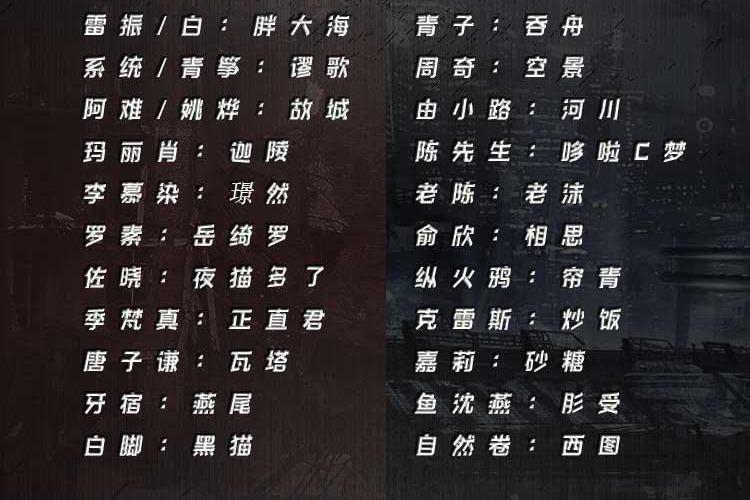 雷振/白：胖大海
系统/青筝：谬歌
阿难/姚烨：故城
玛丽肖：迦陵
李慕染：璟然
罗素：岳绮罗
佐晓：夜猫多了
季梵真：正直君
唐子谦：瓦塔
牙宿：燕尾
白脚：黑猫
青子：吞舟
周奇：空景
由小路：河川
陈先生：哆啦C梦
老陈：老沫
俞欣：相思
纵火鸦：帘青
克雷斯：炒饭
嘉莉：砂糖
鱼沈燕：肜受
自然卷：西图